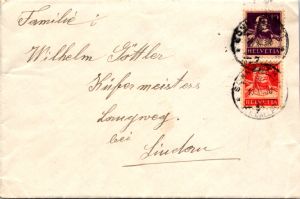 Familie
Wilhelm Göttler
Küfermeisters
Langweg.
bei
Lindau
HELVETIA
HELVETIA